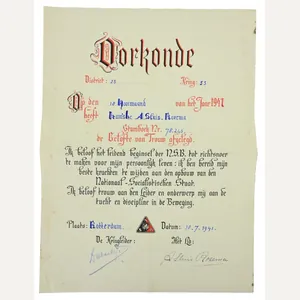 Oorkonde
District: 13 Kring: 53
Op den 10 Hooimaand van het Jaar 1941
heeft
Stamboek Nr.
de Belofte van Trouw afgelegd.
Ik beloof het leidend beginsel der N.S.B. tot richtsnoer
te maken voor mijn persoonlijk leven; ik ben bereid mijn
beste krachten te wijden aan den opbouw van den
Nationaal-Socialistischen Staat.
Ik beloof trouw aan den Leider en onderwerp mij aan de
tucht en discipline in de Beweging.
Plaats: Rotterdam. Datum: 10-7-1941.
De Kringleider: Het Lid: